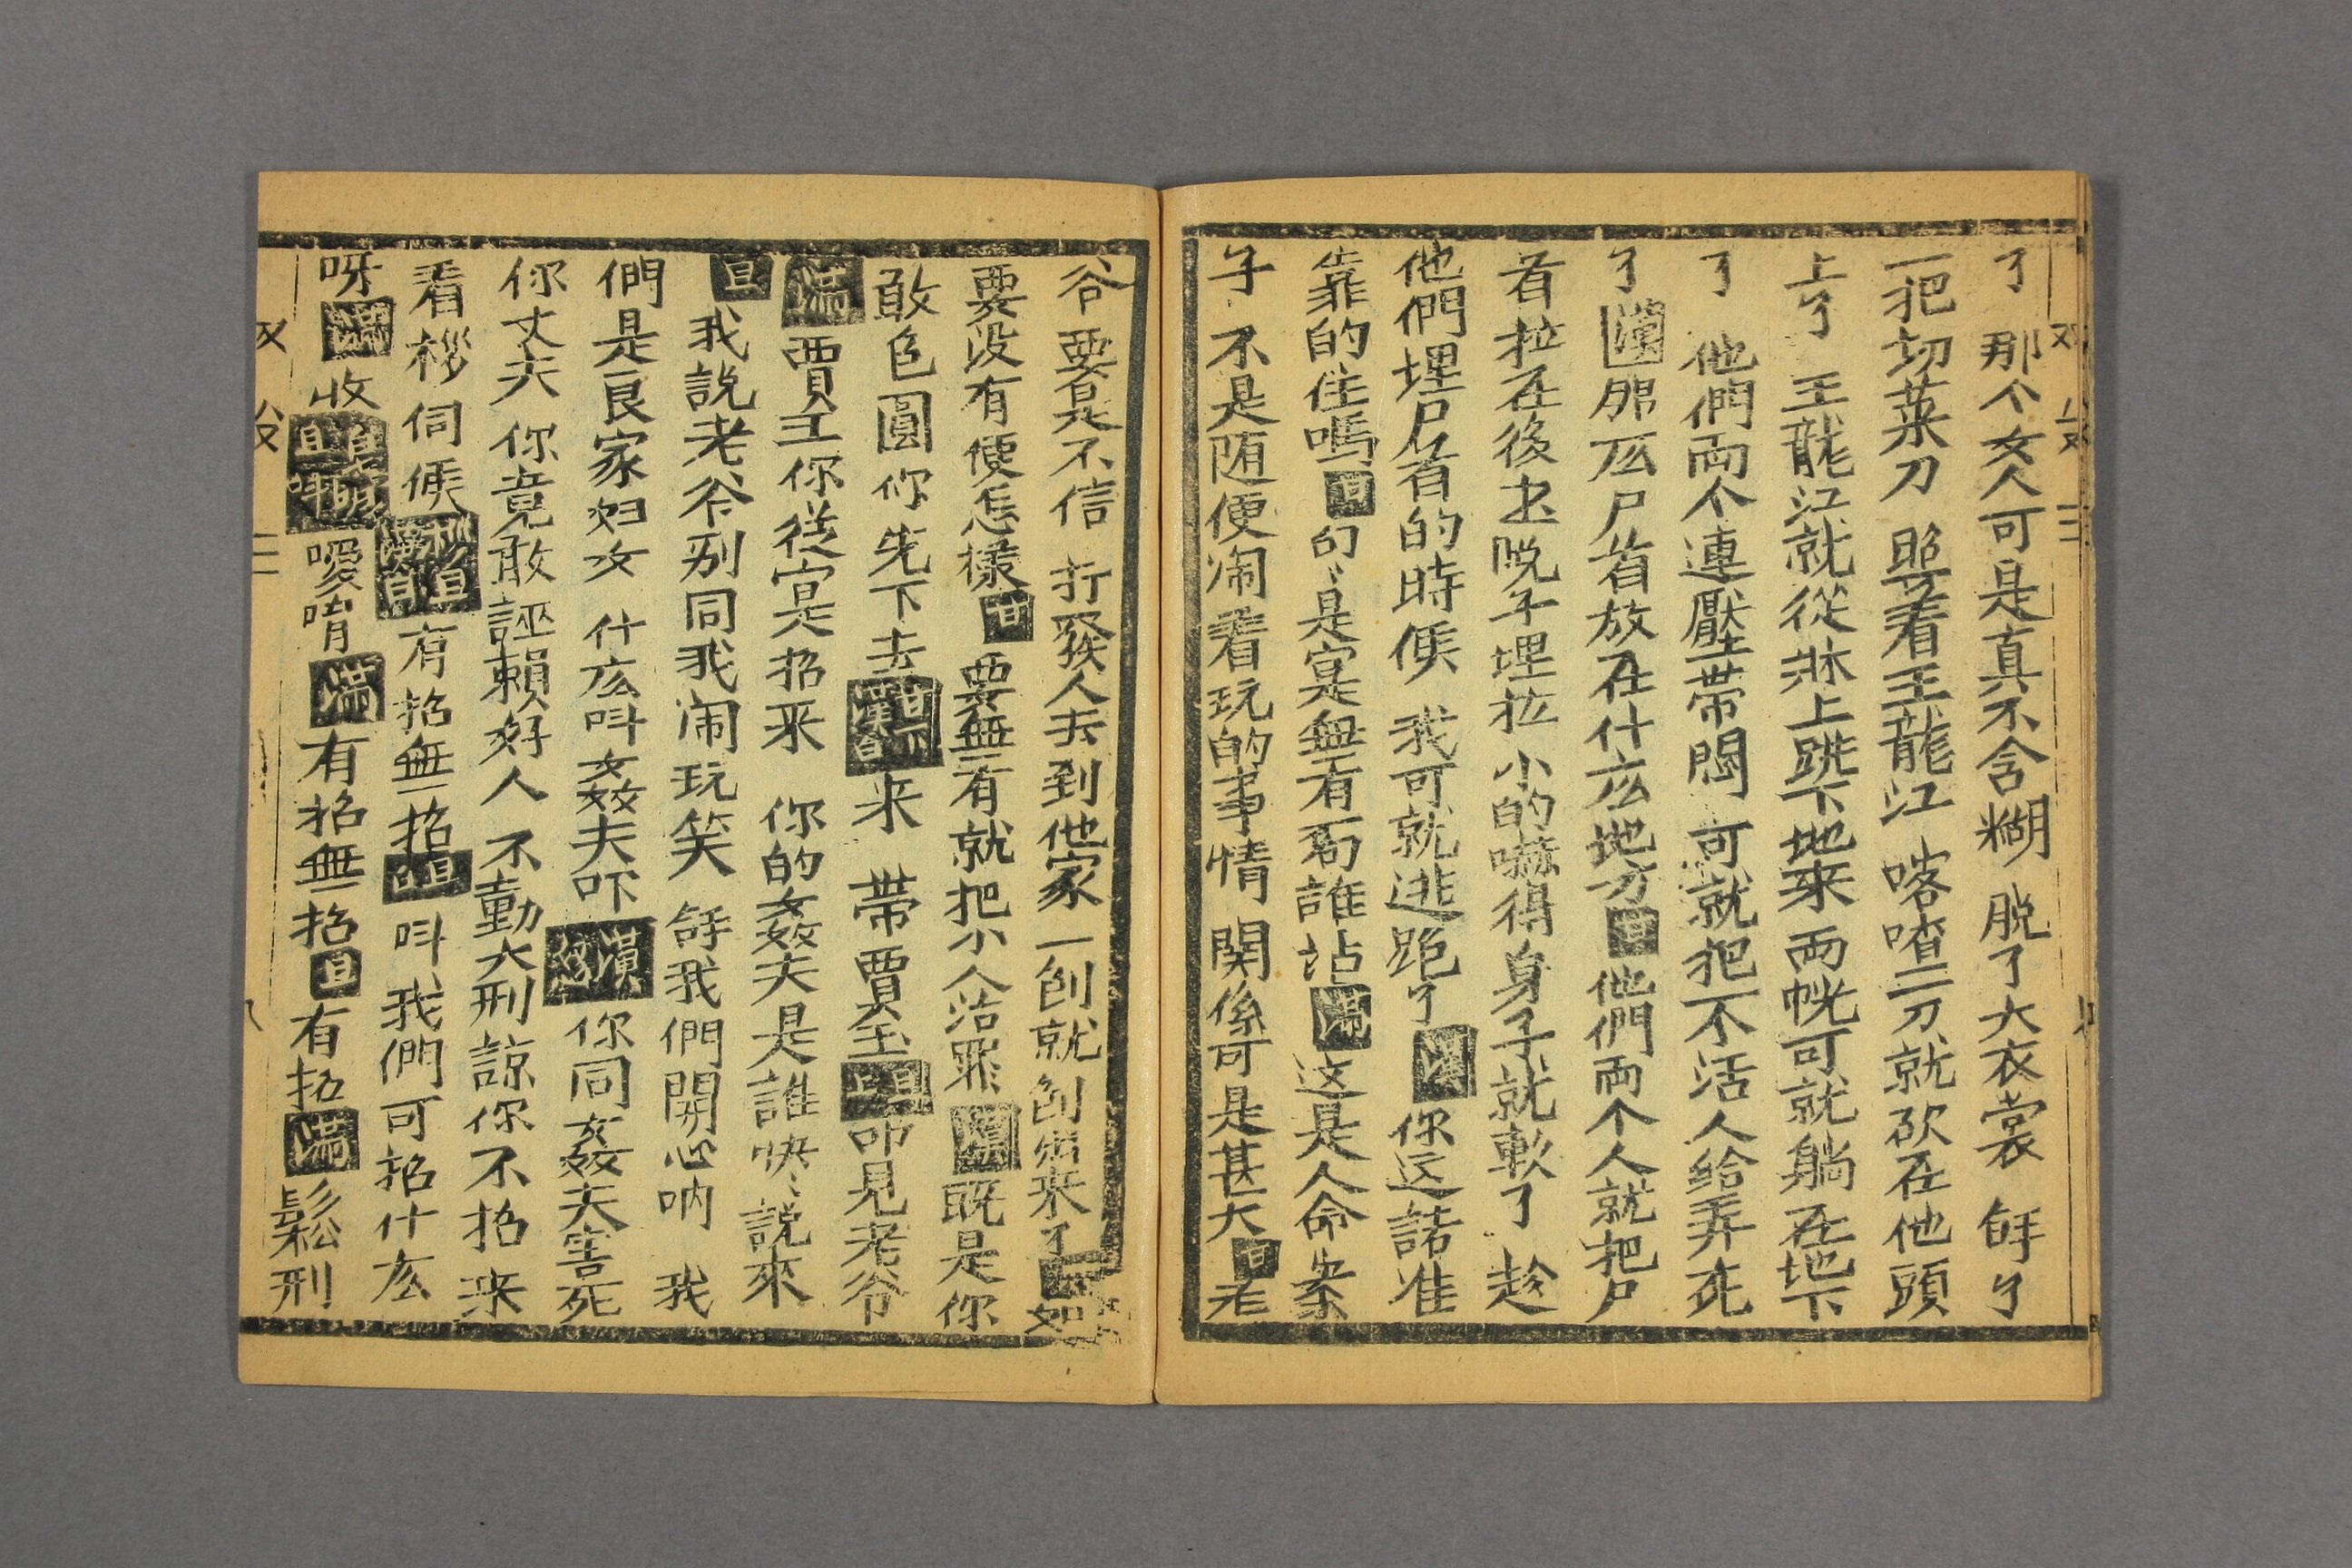 了 那个女人可是真不含糊 脱了大衣裳 
一把切菜刀 照着王龍江 喀喳一刀就砍在他頭
上了 王龍江就從牀上跳下地来 両恍可就躺在地下
了 他們両个連壓帶悶 可就把不活人給弄死
了 那厷尸首放在什庅地方 白 他們両个人就把尸
首拉在後 院子埋拉 小的嚇得身子就軟了 趁
他們埋尸首的時候 我可就逃跑了 滿 你这話准
靠的住嗎 白 的〻是寔無有屈誰 滿 这是人命案
子 不是随便闹着玩的事情 関係可是甚大 白 老
爷要是不信 打發人去到他家一刨就刨出来了 如
要没有便怎樣 白 要無有就把小人治罪 既是你
敢包圓 你先下去 来 帶賈王 叩見老爷
滿 賈王你從寔招来 你的姦夫是誰快〻説來
白 我説老爷别同我闹玩笑 我們開心吶 我
們是良家妇女 什庅叫姦夫吓 你同姦夫害死
你丈夫 你竟敢誣賴好人 不動大刑諒你不招来
看桚伺候 有招無招 白 叫我們可招什庅
呀 滿 收 噯唷 滿 有招無招 白 有招 滿 鬆刑